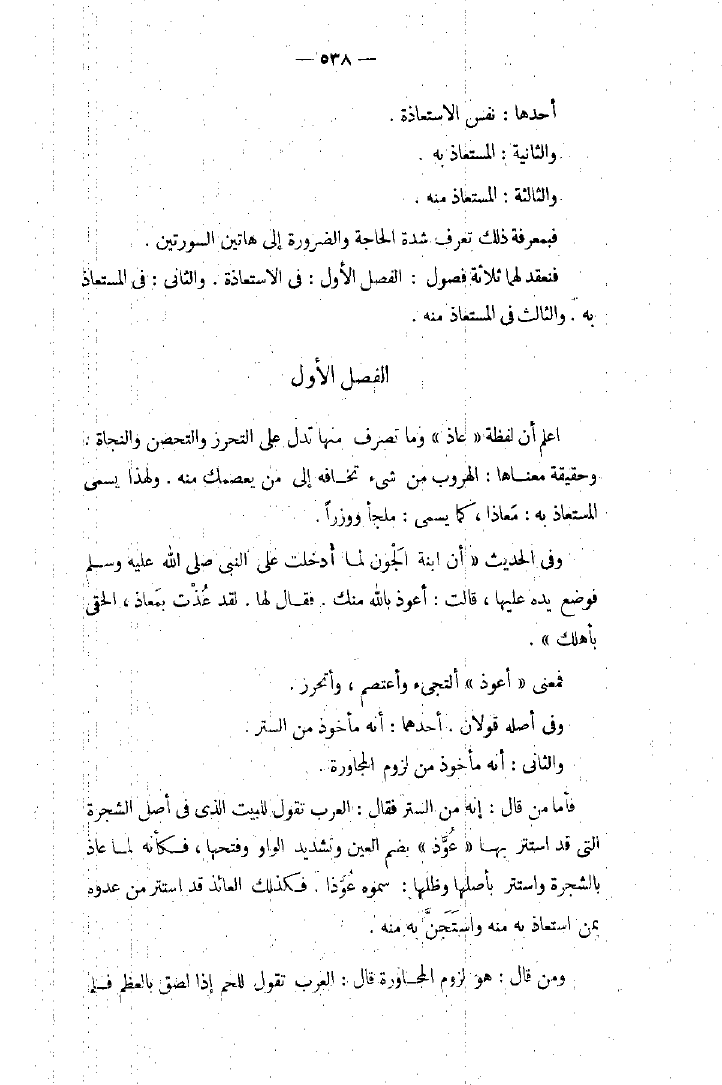 — ٥٣٨ —
أحدها : نفس الاستعاذة .
والثانية : المستعاذ به .
والثالثة : المستعاذ منه .
فبمعرفة ذلك تعرف شدة الحاجة والضرورة إلى هاتين السورتين .
فنعقد لهما ثلاثة فصول : الفصل الأول : فى الاستعاذة . والثانى : فى المستعاذ
به . والثالث فى المستعاذ منه .
الفصل الأول
اعلم أن لفظة « عاذ » وما تصرف منها تدل على التحرز والتحصن والنجاة .
وحقيقة معناها : الهروب من شىء تخافه إلى من يعصمك منه . ولهذا يسمى
المستعاذ به : مَعاذا ، كما يسمى : ملجأ ووزراً .
وفى الحديث « أن ابنة الجَون لما أدخلت على النبى صلى الله عليه وسلم
فوضع يده عليها ، قالت : أعوذ بالله منك . فقال لها . لقد عُذْت بمَعاذ ، الحقى
بأهلك » .
فمعنى « أعوذ » ألتجىء وأعتصم ، وأتحرز .
وفى أصله قولان . أحدهما : أنه مأخوذ من الستر .
والثانى : أنه مأخوذ من لزوم المجاورة .
فأما من قال : إنه من الستر فقال : العرب تقول للبيت الذى فى أصل الشجرة
التى قد استتر بها « عُوَّذ » بضم العين وتشديد الواو وفتحها ، فكأنه لما عاذ
بالشجرة واستتر بأصلها وظلها : سموه عُوَّذا . فكذلك العائذ قد استتر من عدوه
بمن استعاذ به منه واستَجَنَّ به منه .
ومن قال : هو لزوم المجاورة قال : العرب تقول للحم إذا لصق بالعظم فلم